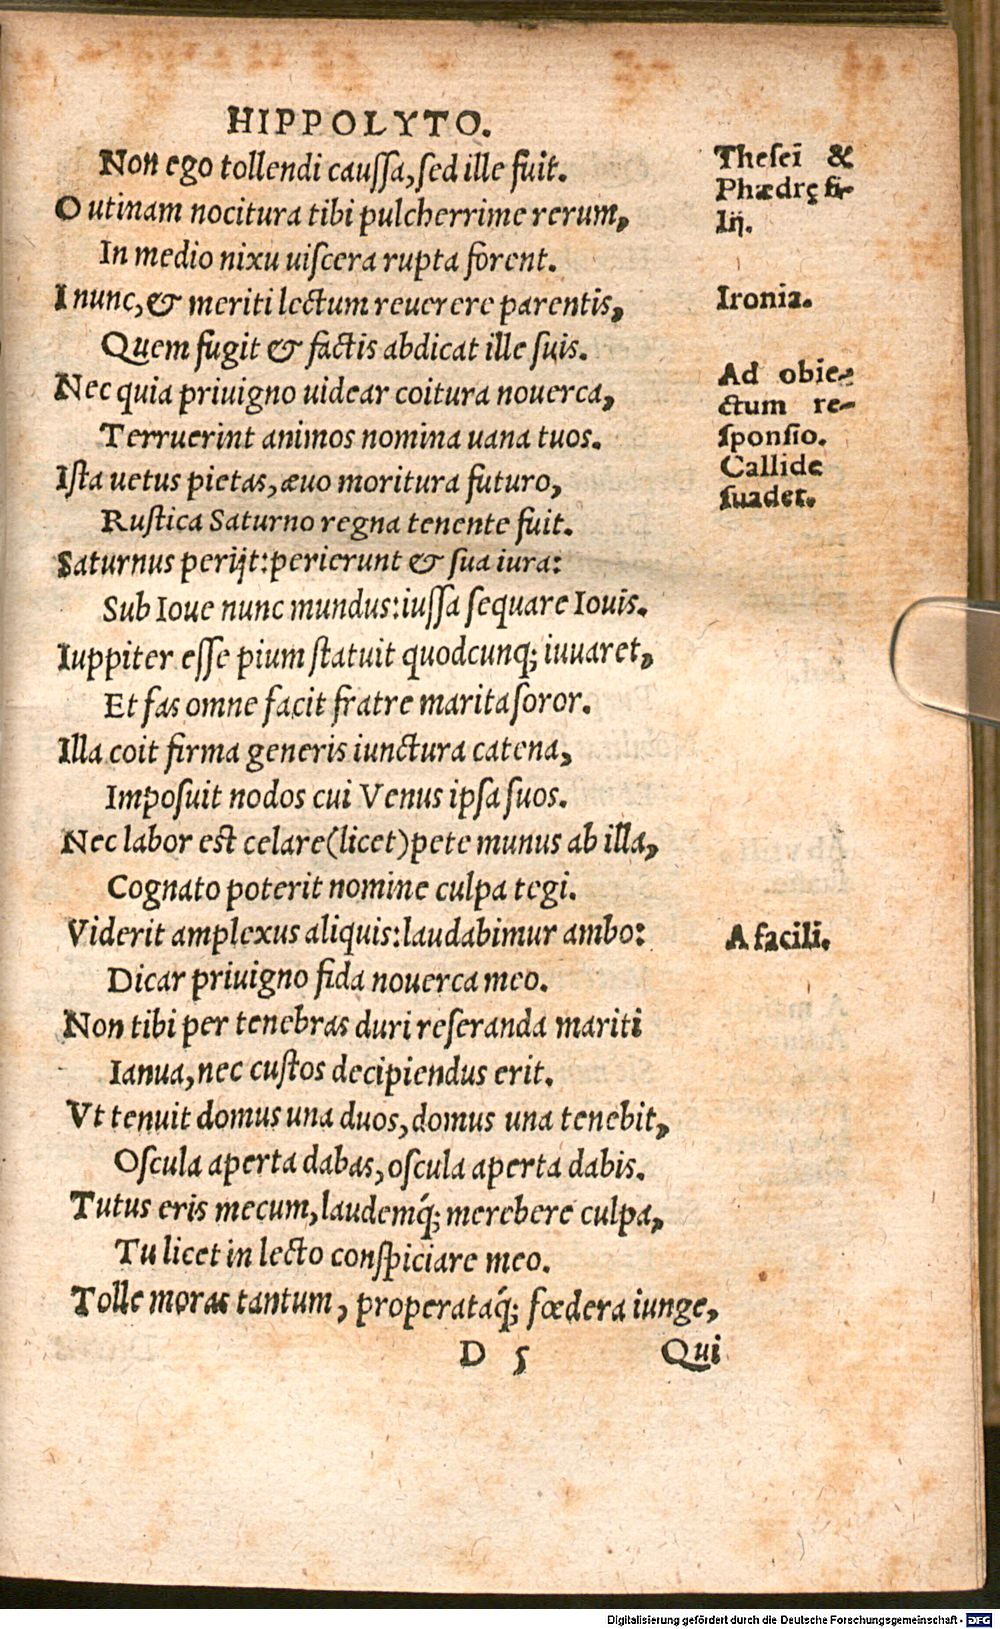 HIPPOLYTO.
Non ego tollendi caussa, sed ille fuit.
O utinam nocitura tibi pulcherrime rerum,
In medio nixu uiscera rupta forent.
I nunc, & meriti lectum reuerere parentis,
Quem fugit & factis abdicat ille suis.
Nec quia priuigno uidear coitura nouerca,
Terruerint animos nomina uana tuos.
Ista uetus pietas, æuo moritura futuro,
Rustica Saturno regna tenente fuit.
Saturnus perijt: perierunt & sua iura:
Sub Ioue nunc mundus: iussa sequare Iouis.
Iuppiter esse pium statuit quodcunq; iuuaret,
Et fas omne facit fratre marita soror.
Illa coit firma generis iunctura catena,
Imposuit nodos cui Venus ipsa suos.
Nec labor est celare (licet) pete munus ab illa,
Cognato poterit nomine culpa tegi.
Viderit amplexus aliquis: laudabimur ambo:
Dicar priuigno fida nouerca meo.
Non tibi per tenebras duri reseranda mariti
Ianua, nec custos decipiendus erit.
Vt tenuit domus una duos, domus una tenebit,
Oscula aperta dabas, oscula aperta dabis.
Tutus eris mecum, laudemq́; merebere culpa,
Tu licet in lecto conspiciare meo.
Tolle moras tantum, properataq́; fœdera iunge,
D 5 Qui
Thesei &
Phædrę fi-
lij.
Ironia.
Ad obie-
ctum re-
sponsio.
Callide
suadet.
A facili.
Digitalisierung gefördert durch die Deutsche Forschungsgemeinschaft - DFG